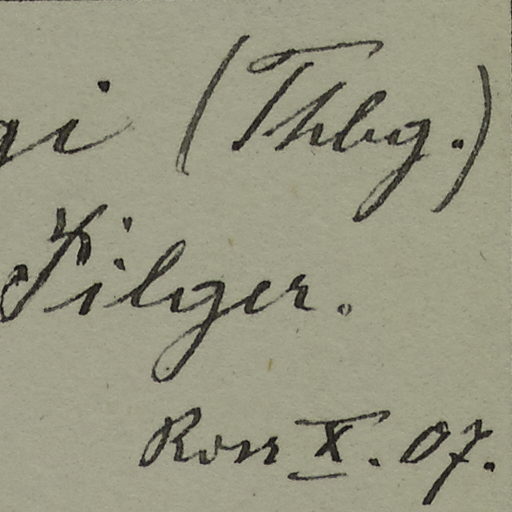 gi (Thbg.)
Pilger.
Ross X. 07.